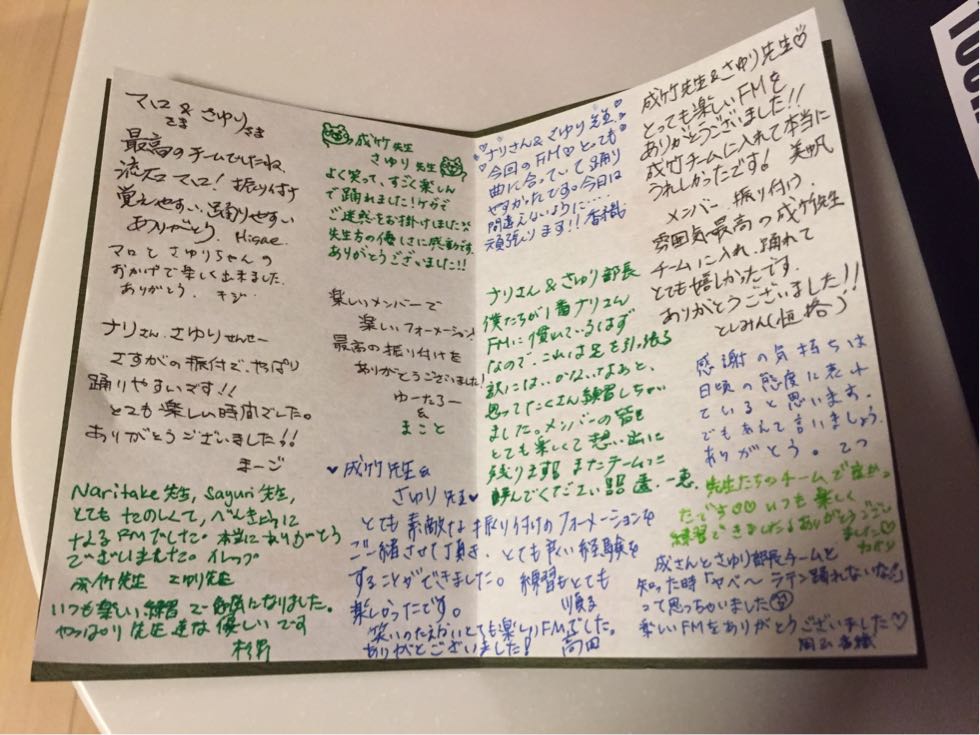 マロ & さゆり
さま さま
最高のチームでしたね
流石マロ! 振り付け
覚えやすい、踊りやすい
ありがとう、Hisae
マロとさゆりちゃんの
おかげで楽しく出来ました
ありがとう、キジ
ナリさん、さゆりせんせー
さすがの振付で、やっぱり
踊りやすいです!!
とても楽しい時間でした。
ありがとうございました!!
まーご
Naritake先生, Sayuri先生,
とてもたのしくて、べんきょうに
なるFMでした。本当にありがとう
ございました。
成竹先生 さゆり先生
いつも楽しい練習で
になりました。
やっぱり先生達は優しいです
成竹先生
さゆり先生
よく笑って、すごく楽しん
で踊れました!ケガで
ご迷惑をお掛けしました
先生方の優しさに感動です
ありがとうございました!!
楽しいメンバーで
楽しいフォーメーション!
最高の振り付けを
ありがとうございました!
ゆーたろー
&
まこと
♥成竹先生&
さゆり先生♥
とても素敵な振り付けのフォーメーションを
ご一緒させて頂き、とても良い経験を
することができました。練習もとても
楽しかったです。
笑いのたえないとても楽しいFMでした。
ありがとございました! 高田
ナリさん&さゆり先生
今回のFM♡とても
曲に合っていて踊り
やすかったです。今日は
間違えないように…
頑張ります!! 香織
ナリさん&さゆり部長
僕たちが1番ナリさん
FMに慣れているはず
なので、これは足を引っ張る
訳にはいかないなぁと、
思ってたくさん練習しちゃい
ました。メンバーの皆も
とても楽しくて想い出に
残ります!! またチームに
呼んでください
成竹先生&さゆり先生♡
とっても楽しいFMを
ありがとうございました!!
成竹チームに入れて本当に
うれしかったです! 美帆
メンバー、振り付け、
雰囲気最高の成竹先生
チームに入れ、踊れて
とても嬉しかったです、
ありがとうございました!!
としみん
感謝の気持ちは
日頃の態度に表れ
ていると思います。
でもあえて言いましょう。
ありがとう。
先生たちのチームで良かっ
たです♡♡ いつも楽しく
練習できました!ありがとうござい
ました♡
成さんとさゆり部長チームと
知った時「ヤベ〜 ラテン踊れないな」
って思っちゃいました
楽しいFMをありがとうございました♡